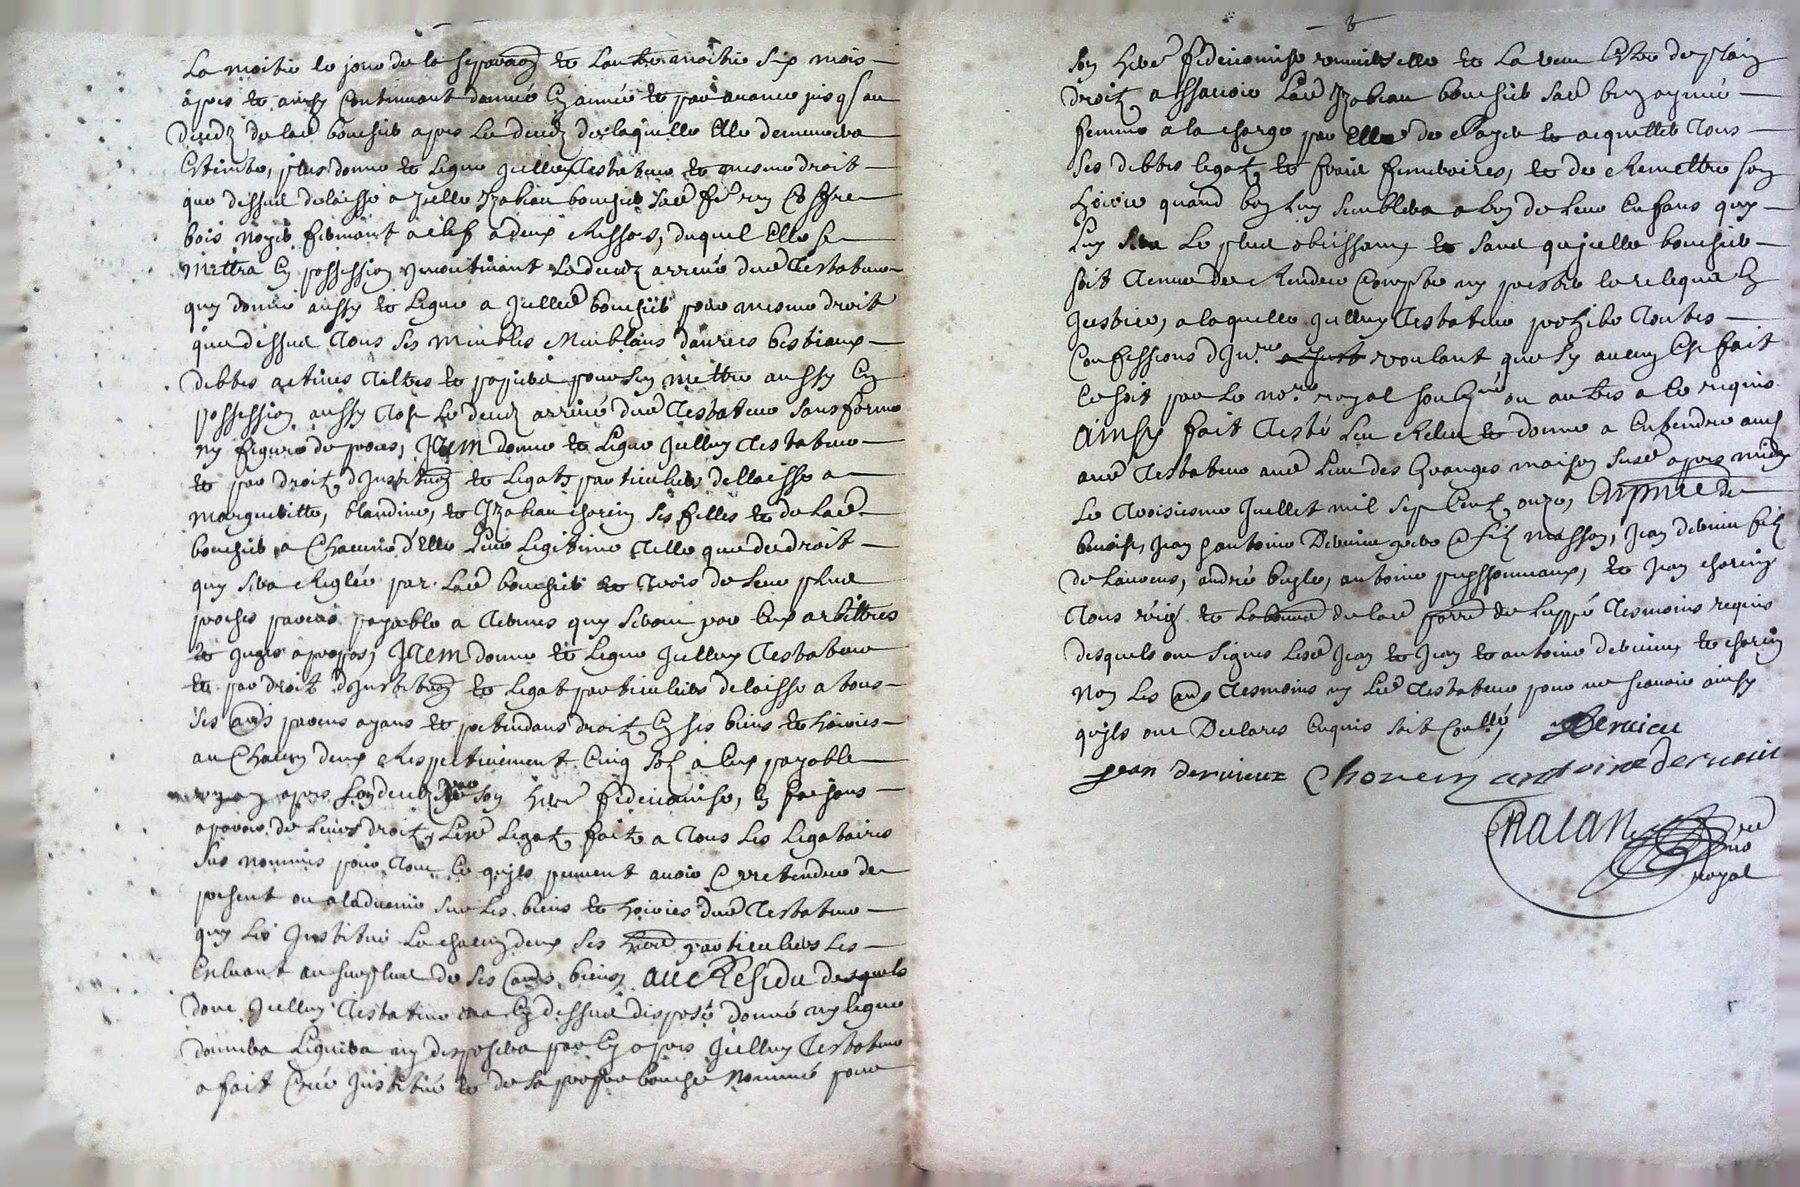 La moitie le jour de la separaõn et lautre moitie six mois
apres et ainsy continuant dannée en année et par avance jusqu au
deceds de lad bouchet apres le deceds de laquelle elle demeurera
esteinte, plus donne et legue Jcelluy testateur et mesme droit
que dessus delaisse a jcelle Jzabeau bouchet sad fe un coffre
bois noyer fermant a clef a deux serres, duquel elle se
mettra en possession jncontinant le deceds arrivé dud testateur
quy donne aussy et legue a Jcelle bouchet pour mesme droit
que dessus tous ses meubles meublans danrees bestiaux
debtes actives tiltres et papiers pour sen mettre aussy en
possession aussy tost le deceds arrivé dud testateur sans forme
ny figure de proces, Jtem donne et legue Jcelluy testateur
et par droit djnstituõn et legat particulier dellaisse a
margueritte, blandine, et Jzabeau chorein ses filles et de lad
bouchet a chacune d'elle leur legitime telle que de droit
quy sera reglée par lad bouchet et trois de leur plus
proches parens payable a termes quy seront par eux arbittres
et juges a propos, Jtem donne et legue Jcelluy testateur
et par droit djnstituõn et legat particulier delaisse a tous
ses aud parens ayans et pretendans droit en ses biens et hoiries
au chacun deux respectivement cinq sols a eux payable
apres son deceds par son herer fideicomise, en fasjons
apparoir de leurs droit, lesd legat fait a tous les legataires
sus nommes pour tout ce qujls peuvent avoir et pretendre de
present ou aladvenir sur les biens et hoiries dud testateur
quy les Jnstitue le chacun deux ses herer particuliers les
excluant au surplus de ses aud biens, au Residu desquels
dont Jcelluy testateur na en dessus disposé donné ny legue
donnera leguera ny disposera par en apres Jcelluy testateur
a fait créé Jnstitué et de sa propre bouche nommé pour
son herer fideicomise universelle et la veut estre de plain
droit assavoir lad Jzabeau bouchet sad bien aymée
femme a la charge par elle de payer et acquitter tous
ses debtes legat, et frais funeraires, et de remettre son
hoirie quand bon luy semblera a lun de leur enfans quy
luy sera le plus obeissant, et sans qujcelle bouchet
soit tenue de rendre compte ny prester le reliqua en
justice, a laquelle Jcelluy testateur prohibe toutes
confessions dJnre voulant que sy aucun est fait
ce soit par le nore royal soubné ou autres a ce requis
ainsy fait testé leu releu et donné a entendre aud
aud testateur aud lieu des granges maison susd apres midy
le troisiesme juillet mil sept cent onze, en pnce de
benoist, Jean antoine Dervieu, jean dervieu fils
de laurens, andré bugle, antoine puyssonneaux, et Jean chorein
tous de la parre de luppé tesmoins requis
desquels ont signes lesd Jean et Jean et antoine dervieux, et chorein
non les aud tesmoins ny led testateur pour ne scavoir ainsy
qujls ont declares enquis soit conllé, Dervieu
jean dervieux Chorein antoine dervieu
Chatan nre
royal